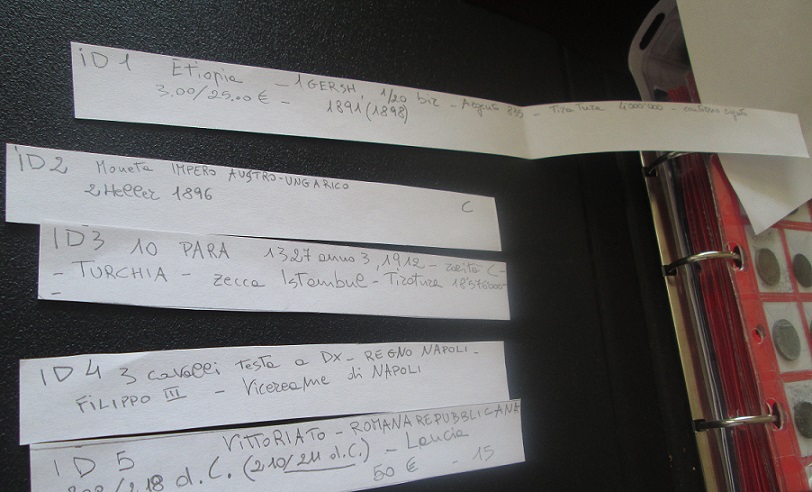 iD 1 Etiopia - 1 GERSH, 1/20 bir - Argento 835 - Tiratura 4000000 -
3.00/25.00 € - 1891 (1898)
iD2 Moneta IMPERO AUSTRO-UNGARICO
2 Heller 1896 C
ID3 10 PARA 1327 anno 3, 1912 - rarità C -
- TURCHIA - zecca Istambul - Tiratura 18576000 -
ID 4 3 cavalli testa a DX - REGNO NAPOLI -
FILIPPO III - Vicereame di NAPOLI
ID 5 VITTORIATO - ROMANA REPUBBLICANA
/218 d.C. (210/211 d.C.) - Lancia
50 € - 15